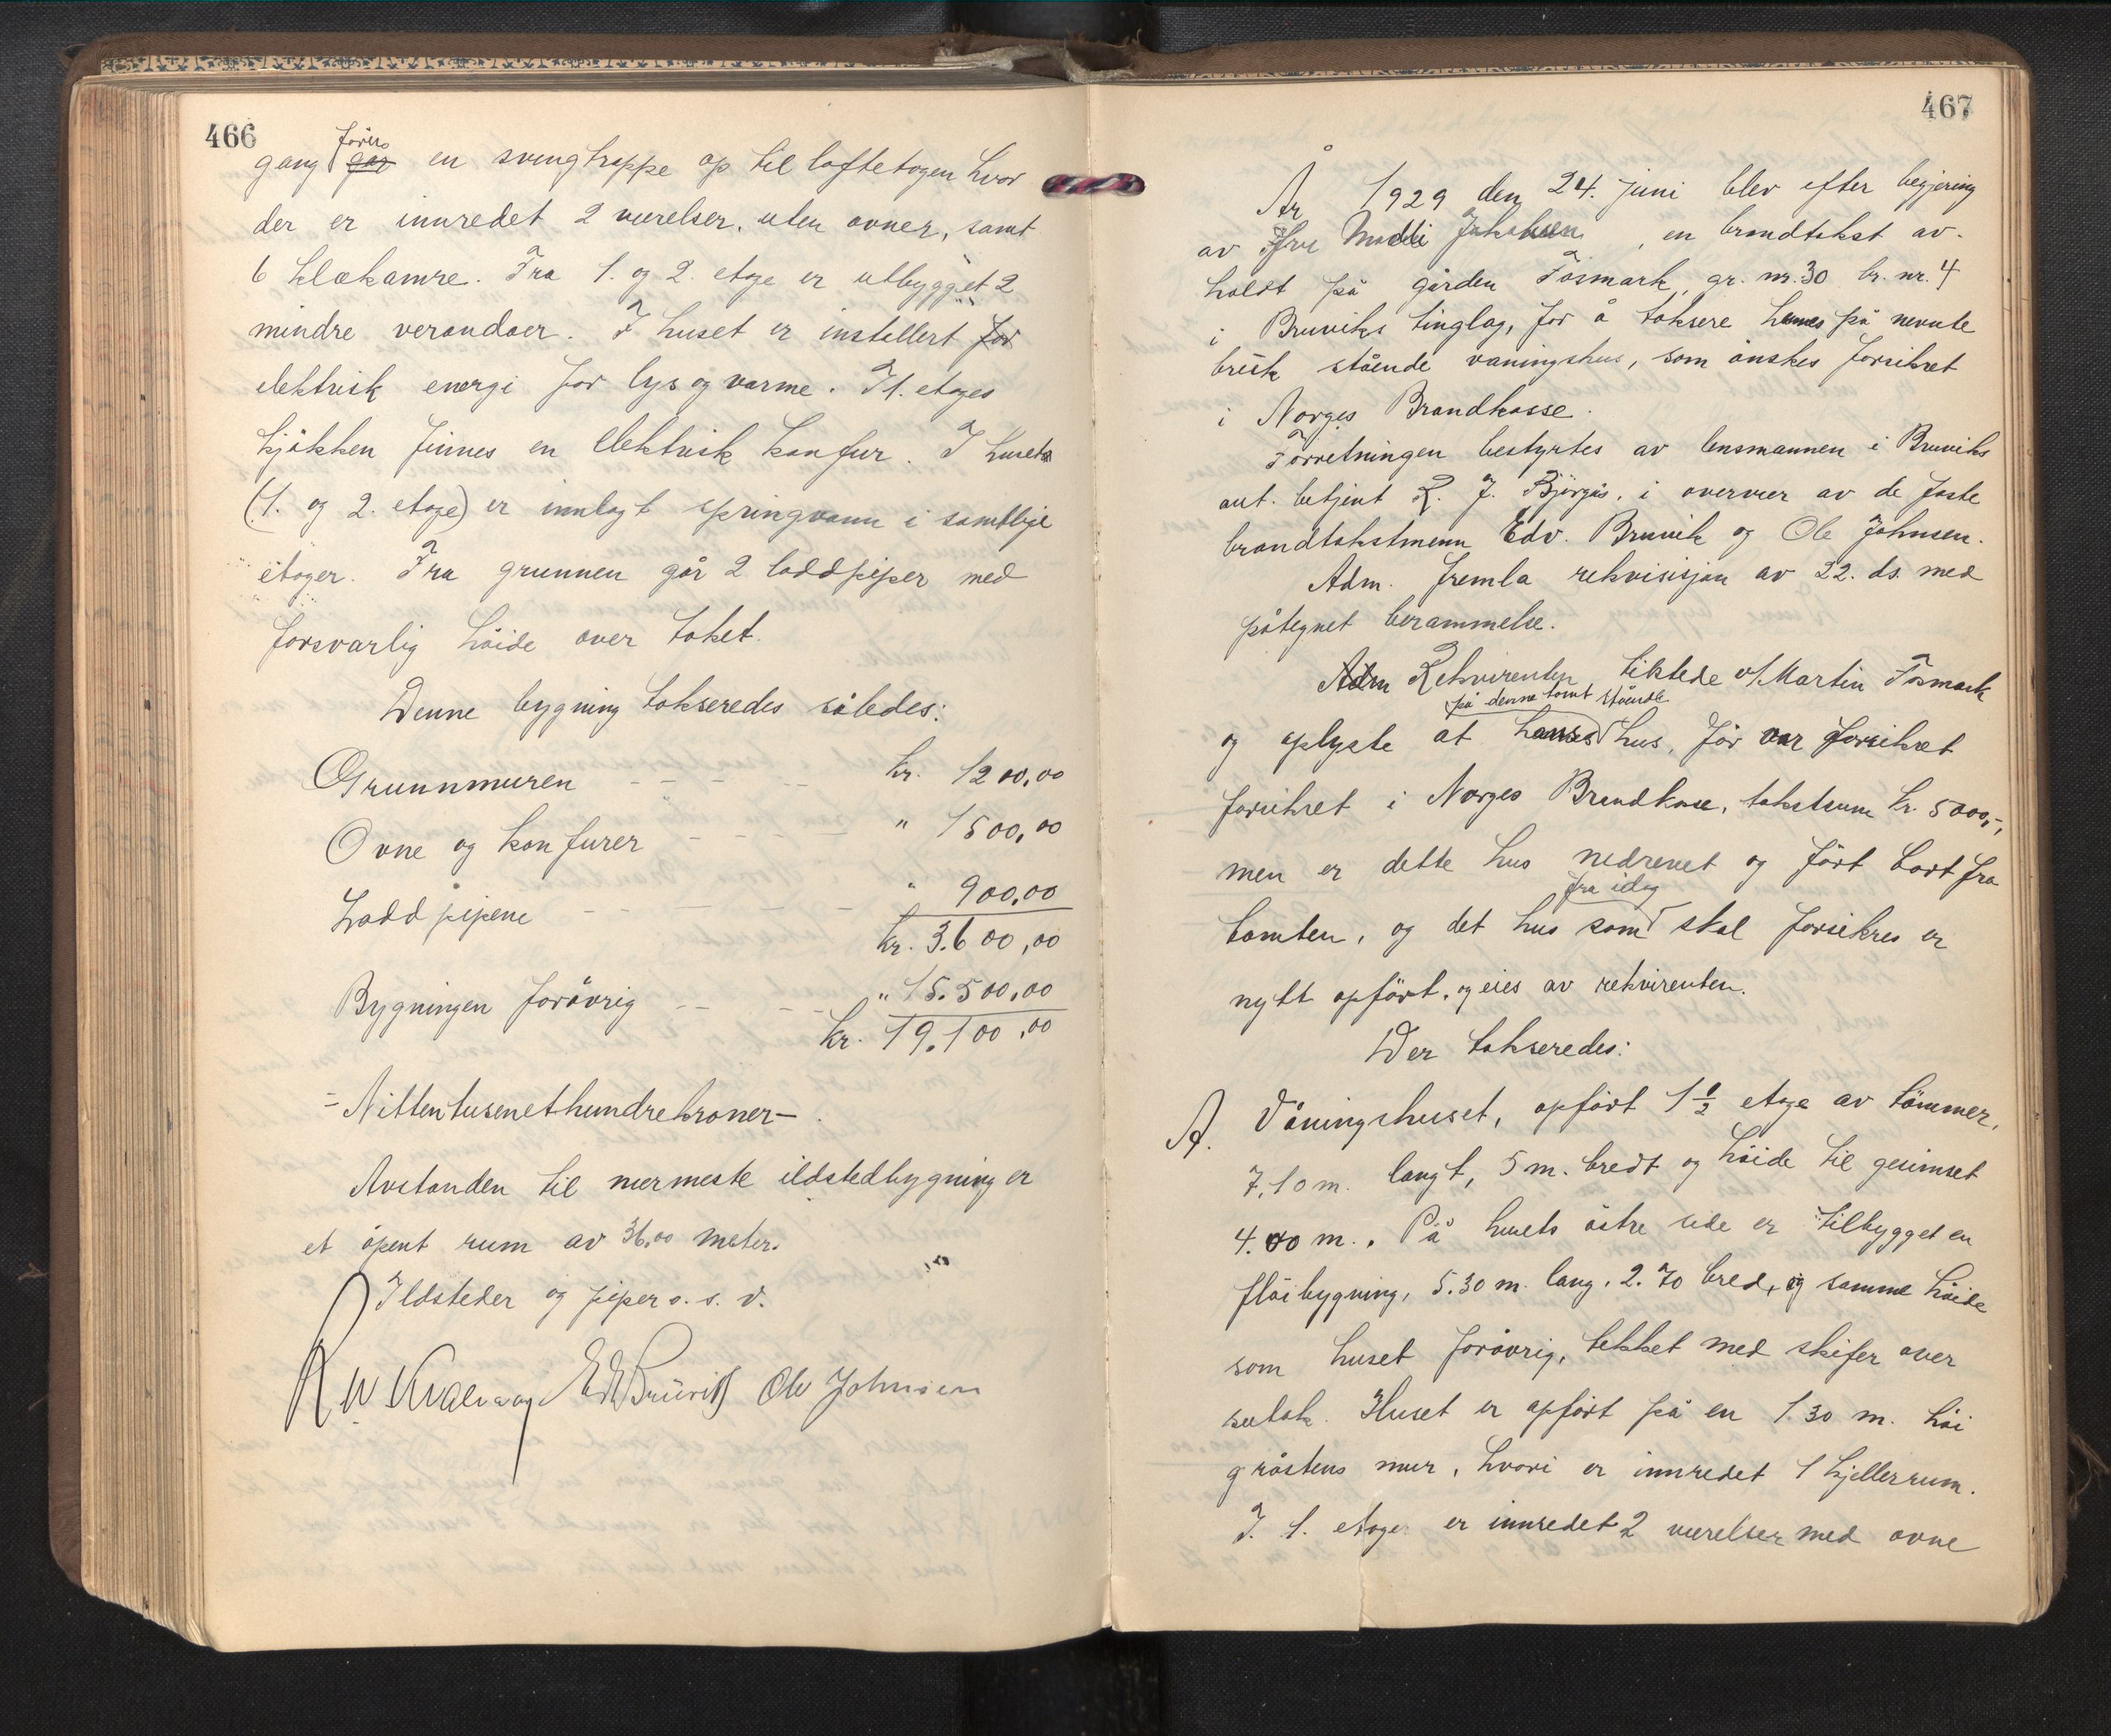 466
gang føres en svingtrappe op til loftetagen hvor
der er innredet 2 værelser, uten ovner, samt
6 klækamre. Fra 1. og 2. etage er utbygget 2
mindre verandaer. I huset er installert for
elektrisk energi for lys og varme. I 1. etages
kjøkken finnes en elektrisk konfur. I husets
(1. og 2. etage) er innlagt springvann i samtlige
etager. Fra grunnen går 2 loddpiper med
forsvarlig høide over taket.
Denne bygning takseredes således:
Grunnmuren - - - - kr. 1200,00
Ovne og konfurer - - - - " 1500,00
Loddpipene - - - - " 900,00
kr. 3.600,00
Bygningen forøvrig - - - " 15.500,00
kr. 19.100,00
= Nittentusenethundrekroner -
Avstanden til nærmeste ildstedbygning er
et åpent rum av 36,00 meter.
Ildsteder og piper o. s. v.
Edv Bruvik Ole Johnsen
467
År 1929 den 24. juni blev efter begjæring
av Fru Jakobsen, en brandtakst av-
holdt på gården Fosmark, gr. nr. 30 br. nr. 4
i Bruviks tinglag, for å taksere hennes på nevnte
bruk stående våningshus, som ønskes forsikret
i Norges Brandkasse.
Forretningen bestyrtes av lensmannen i Bruviks
aut. betjent R. J. Bjørgås, i overvær av de faste
brandtakstmenn Edv. Bruvik og Ole Johnsen.
Adm. fremla rekvisisjon av 22. ds. med
påtegnet berammelse.
Adm Rekvirenten tilstede v/ Martin Fosmark
på denne tomt stående
og oplyste at hus, før var forsikret
forsikret i Norges Brandkasse, takstsum kr. 5000,-,
men er dette hus nedrevet og ført bort fra
fra idag
tomten, og det hus som skal forsikres er
nytt opført, og eies av rekvirenten.
Der takseredes:
A. Våningshuset, opført 1 1/2 etage av tømmer,
7,10 m. langt, 5 m. bredt og høide til gesimset
4.00 m.. På husets østre side er tilbygget en
fløibygning, 5.30 m. lang, 2.70 bred, og samme høide
som huset forøvrig, tekket med skifer over
sutak. Huset er opført på en 1.30 m. høi
gråstens mur, hvori er innredet 1 kjellerrum.
I. 1. etage er innredet 2 værelser med ovne